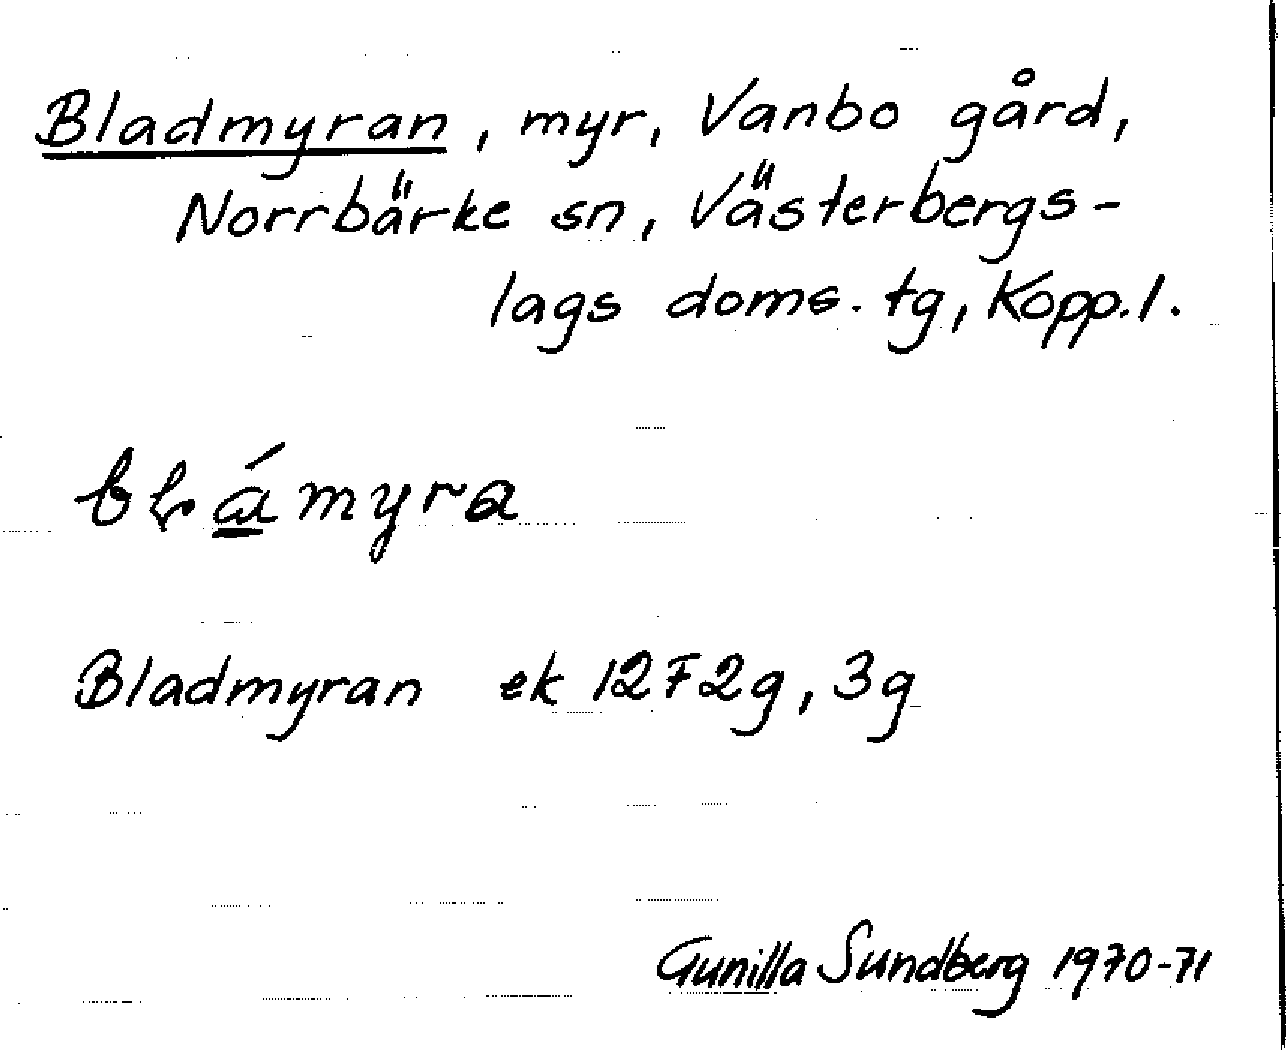 Bladmyran, myr, Vanbo gård,
Norrbärke sn, Västerbergs-
lags doms. tg, Kopp. l.
blámyra
Bladmyran ek 12F2g, 3g
Gunilla Sundberg 1970-71